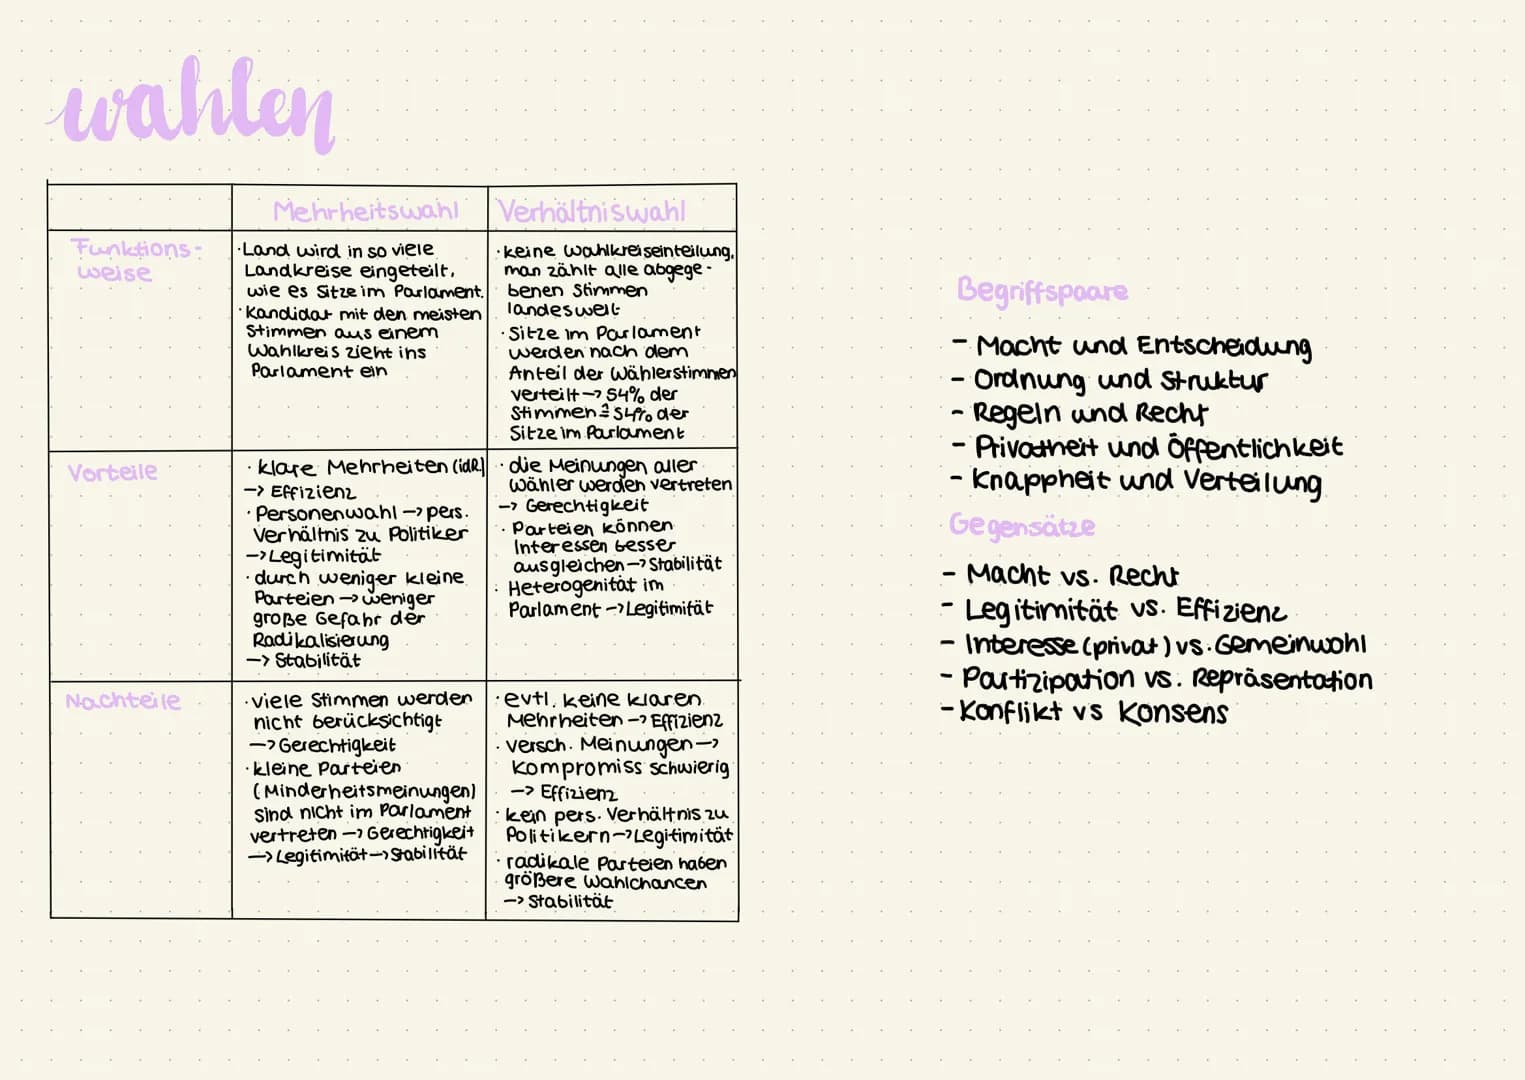 wahlen
Mehrheitswahl
Verhältniswahl
Funktions-
weise
·Land wird in so viele
Landkreise eingeteilt,
wie es Sitze im Parlament.
·Kandidat mit den meisten
Stimmen aus einem
Wahlkreis zieht ins
Parlament ein
·keine Wahlkreiseinteilung,
man zählt alle abgege-
benen Stimmen
landesweit
·Sitze im Parlament
werden nach dem
Anteil der Wählerstimmen
verteilt -> 54% der
Stimmen ≙ 54% der
Sitze im Parlament
Vorteile
·klare Mehrheiten (idR)
-> Effizienz
·Personenwahl -> pers.
Verhältnis zu Politiker
-> Legitimität
·durch weniger kleine
Parteien -> weniger
große Gefahr der
Radikalisierung
-> Stabilität
·die Meinungen aller
Wähler werden vertreten
-> Gerechtigkeit
·Parteien können
Interessen besser
ausgleichen -> Stabilität
·Heterogenität im
Parlament -> Legitimität
Nachteile
·viele Stimmen werden
nicht berücksichtigt
-> Gerechtigkeit
·kleine Parteien
(Minderheitsmeinungen)
sind nicht im Parlament
vertreten -> Gerechtigkeit
-> Legitimität -> Stabilität
·evtl. keine klaren
Mehrheiten -> Effizienz
·versch. Meinungen ->
Kompromiss schwierig
-> Effizienz
·kein pers. Verhältnis zu
Politikern -> Legitimität
·radikale Parteien haben
größere Wahlchancen
-> Stabilität
Begriffspaare
- Macht und Entscheidung
- Ordnung und Struktur
- Regeln und Recht
- Privatheit und Öffentlichkeit
- Knappheit und Verteilung
Gegensätze
- Macht vs. Recht
- Legitimität vs. Effizienz
- Interesse (privat) vs. Gemeinwohl
- Partizipation vs. Repräsentation
- Konflikt vs Konsens